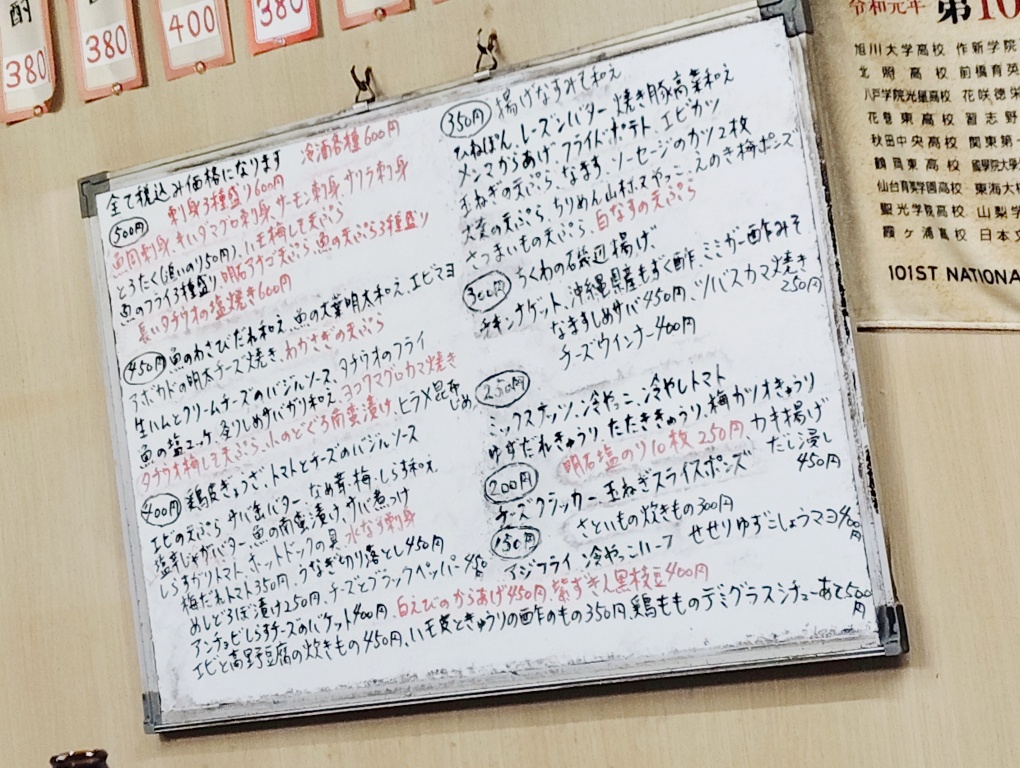 380
380
400
380
全て税込み価格になります
冷酒各種600円
刺身3種盛り600円
500円
魚同刺身、きハダマグロ刺身、サーモン刺身、サワラ刺身
とろたく(追いのり50円)、ハモ梅しそ天ぷら
魚のフライ3種盛り、明石アナゴ天ぷら、魚の天ぷら3種盛り
長いタチウオの塩焼き600円
450円 魚のわさびだれ和え、魚の大葉明太和え、エビマヨ
アボカドの明太チーズ焼き、わかさぎの天ぷら
生ハムとクリームチーズのバジルソース、タチウオのフライ
魚の塩ユッケ、炙りしめサバガリ和え、ヨコワマグロカマ焼き
タチウオ梅しそ天ぷら、小のどぐろ南蛮漬け、ヒラメ昆布じめ、
400円 鶏皮ぎょうざ、トマトとチーズのバジルソース
エビの天ぷら、サバ缶バター、なめ茸、梅、しらす和え
塩辛じゃがバター、魚の南蛮漬け、サバ煮つけ
しらすガリトマト、ホットドックの具、水なす刺身
梅だれトマト350円、うなぎ切り落とし450円
めしどろぼ漬け250円、チーズとブラックペッパー450
アンチョビしらすチーズのバケット400円、白えびのからあげ450円、紫ずきん黒枝豆400円
エビと高野豆腐の炊きもの450円、ハモ皮ときゅうりの酢のもの350円、鶏もものデミグラスシチューあて500円
350円 揚げなすみそ和え
ひねぽん、レーズンバター、焼き豚高菜和え
メンマからあげ、フライドポテト、エビカツ
玉ねぎの天ぷら、なます、ソーセージのカツ2枚
大葉の天ぷら、ちりめん山村、えのき梅ポンズ
さつまいもの天ぷら、白なすの天ぷら
300円 ちくわの磯辺揚げ、
チキンナゲット、沖縄県産もずく酢、ミミガー酢みそ
なすしめサバ450円、ツバスカマ焼き250円
チーズウインナー400円
250円
ミックスナッツ、冷やっこ、冷やしトマト
ゆずだれきゅうり、たたききゅうり、梅カツオきゅうり
明石塩のり10枚250円 カキ揚げだし浸し450円
200円
チーズクラッカー、玉ねぎスライスポンズ
さといもの炊きもの300円
150円
アジフライ、冷やっこハーフ せせりゆずこしょうマヨ400円
令和元年 第10
旭川大学高校 作新学院
北照高校 前橋育英
八戸学院光星高校 花咲徳栄
花巻東高校 習志野
秋田中央高校 関東第一
鶴岡東高校 國學院大學
仙台育英学園高校 東海大
聖光学院高校 山梨学
霞ヶ浦高校 日本文
101ST NATIONA